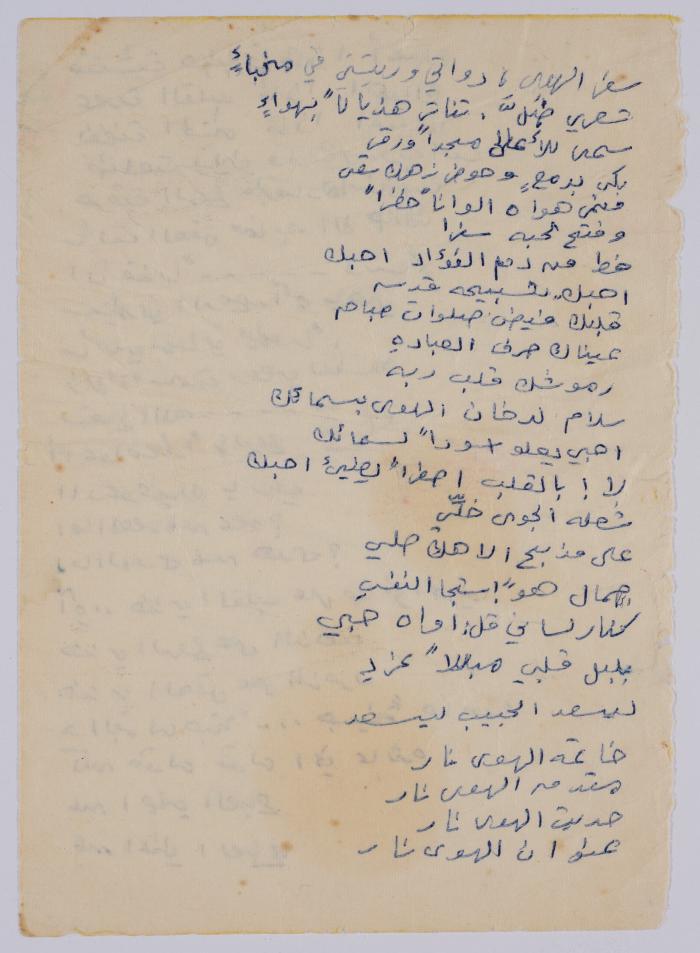 سفر الهوى، دواتي وريشتي في مخباءٍ
شعري ضلَّ، تناثر هذياناً بهواءٍ
سمى للأعالى مسجداً ورقى
بكى بدمعٍ وحوض زهرك سقى
فغنى هواه الوانا خطراً
وفتح لحبه سفرا
خط من دم الفؤاد احبك
احبك، تسبيحه قدسه
قلبك فيض صلوات صباحه
عيناك حرف العباده
رموشك قلب ربه
سلام لدخان الهوى بسمائك
احبي يعلو سوداً لسمائك
لا! بالقلب اصفراً يضيئ احبك
شعله الجوى خلّي
على مذبح الاهك صلي
جمال هو استجا النفس
كنار لساني قل: اواه حبي
بلبل قلبي مبللاً غرد
ليسعد الحبيب ليسعد
خاتمة الهوى نار
مقدمه الهوى نار
حديث الهوى نار
عنوان الهوى نار